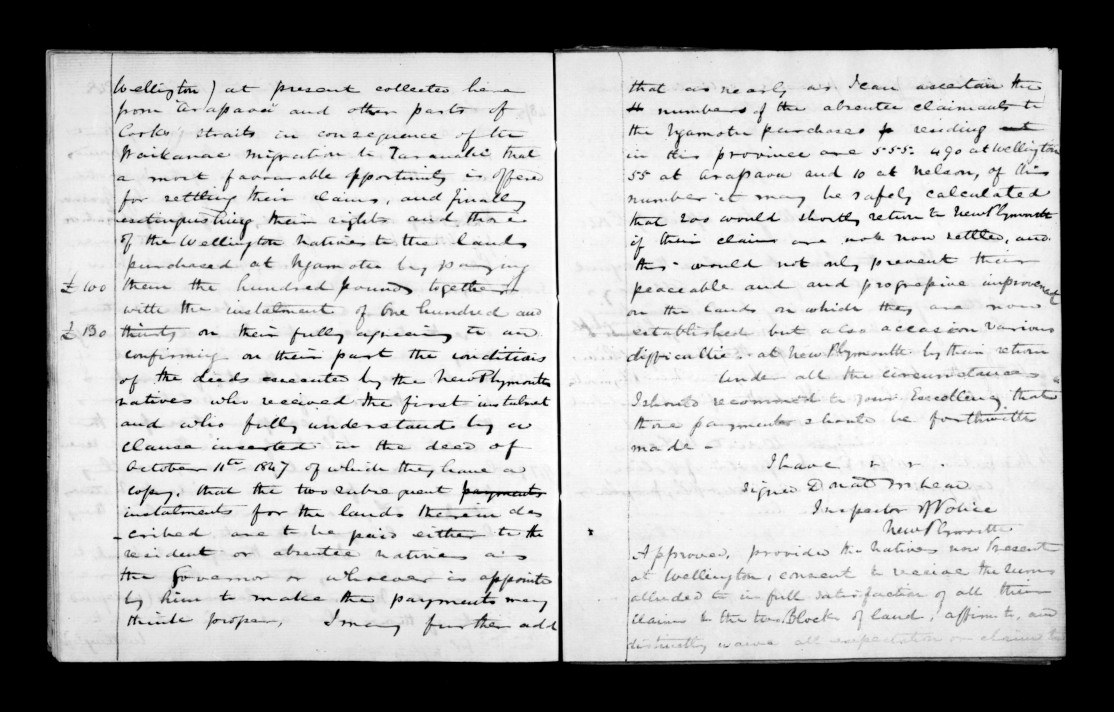 Wellington) at present collected here
from "Arapaoa" and other parts of
Cooks straits in consequence of the
Waikanae migration to Taranaki that
a most favourable opportunity is offered
for settling their claims, and finally
extinguishing their rights and those
of the Wellington natives to the lands
purchased at Ngamotu by paying
£100 them the hundred pounds together
with the instalment of One hundred and
£130 thirty on their fully agreeing to and
confirming on their part the conditions
of the deeds executed by the New Plymouth
natives who received the first instalment
and who fully understand by a
clause inserted in the deed of
October 11th 1847 of which they have a
copy, that the two subsequent payments
instalments for the lands therein des
-cribed are to be paid either to the
resident or absentee natives as
the Governor or whoever is appointed
by him to make the payments may
think proper. I may further add
that as nearly as I can ascertain the
numbers of the absentee claimants to
the Ngamotu purchases residing
in this province are 555. 490 at Wellington
55 at Arapaoa and 10 at Nelson, of this
number it may be safely calculated
that 200 would shortly return to New Plymouth
if their claims are not now settled, and
this would not only prevent their
peaceable and and progressive improvement
on the lands on which they are now
established but also occasion various
difficulties at New Plymouth by their return
Under all the circumstances
I should recommend to your Excellency that
those payments should be forthwith
made -
I have
Signed Donald McLean
Inspector of Police
New Plymouth
Approved, provided the Natives now present
at Wellington, consent to receive the sums
alluded to in full satisfaction of all their
claims to the two Blocks of land, affirm to, and
distinctly waive all expectation or claim to